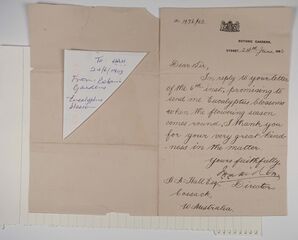 BOTANIC GARDENS,
SYDNEY, 24th June
Dear Sir,
In reply to your letter
of the 6th inst, promising to
send me Eucalyptus blossoms
when the flowering season
comes round, I thank you
for your very great kind-
ness in the matter
Yours faithfully
Director
H. A. Hall Esq
Cossack
W. Australia.
To HAH
24/6/1903
From Botanic
Gardens
Eucalyptus
blossom